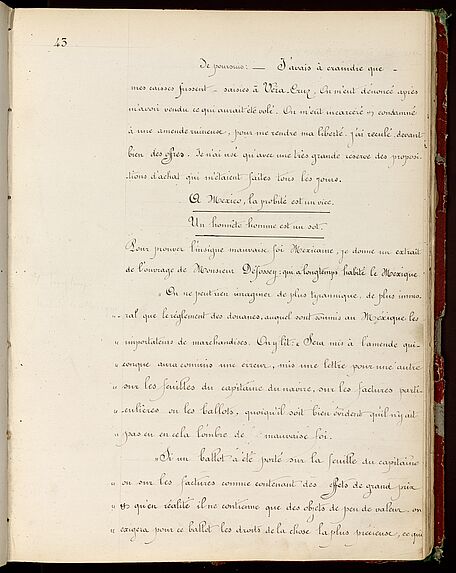 43
Je poursuis: — J'avais à craindre que -
mes caisses fussent - saisies à Véra-Cruz. On m'eut dénoncé après
m'avoir vendu ce qui aurait été volé. On m'eut incarcéré et condamné
à une amende ruineuse, pour me rendre ma liberté. J'ai reculé, devant
bien des offres. Je n'ai usé qu'avec une très grande reserve des proposi-
tions d'achat qui m'étaient faites tous les jours.
A Mexico, la probité est un vice.
Un honnête homme est un sot.
Pour prouver l'insigne mauvaise foi Mexicaine, je donne un extrait
de l'ouvrage de Monsieur Defossey: qui a longtemps habité le Mexique.
"On ne peut rien imaginer de plus tyrannique, de plus immo-
" ral que le règlement des douanes, auquel sont soumis au Mexique les
" importateurs de marchandises. On y lit: « Sera mis à l'amende qui-
" conque aura commis une erreur, mis une lettre pour une autre
" sur les feuilles du capitaine du navire, sur les factures parti-
" culières ou les ballots, quoiqu'il soit bien évident qu'il n'y ait
" pas eu en cela l'ombre de mauvaise foi.
" Si un ballot a été porté sur la feuille du capitaine
" ou sur les factures comme contenant des effets de grand prix
" et qu'en réalité il ne contienne que des objets de peu de valeur, on
" exigera pour ce ballot les droits de la chose la plus précieuse, ce qui